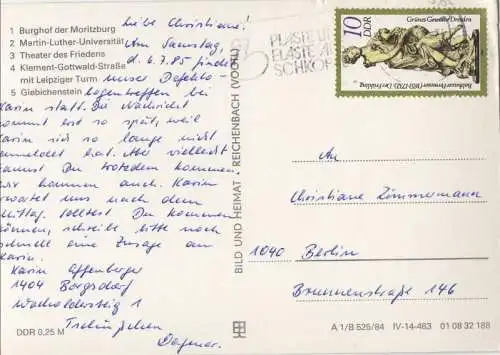 1 Burghof der Moritzburg
2 Martin-Luther-Universität
3 Theater des Friedens
4 Klement-Gottwald-Straße
mit Leipziger Turm
5 Giebichenstein
Liebe Christiane!
Am Samstag,
d. 6.7.85 findet
unser Defekto-
logentreffen bei
Karin statt. Die Nachricht
kommt erst so spät, weil
Karin sich so lange nicht
gemeldet hat. Aber vielleicht
kannst Du trotzdem kommen.
Wir kommen auch. Karin
erwartet uns nach dem
Mittag. Solltest Du kommen
können, schreibe bitte noch
schnell eine Zusage an
Karin.
Karin Effenberger
1404 Borgsdorf
Wacholdersteig 1
Tschüßchen
Dagmar.
DDR 0,25 M
BILD UND HEIMAT REICHENBACH (VOGTL)
PLASTE U
ELASTE A
SCHKO
10
DDR
Grünes Gewölbe Dresden
Balthasar Permoser (1651-1732) · Der Frühling
An
Christiane Zimmermann
1040 Berlin
Brunnenstraße 146
A 1/B 525/84 IV-14-483 01 08 32 188